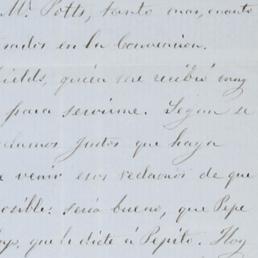 Mr. Potts, tanto mas, cuanto
en la Convencion.
quien me recibió muy
para servirme. Segun se
clamos justos que haya
venir esos reclamos de que
osible: será bueno, que Pepe
que le dicte á Pepito. Hoy